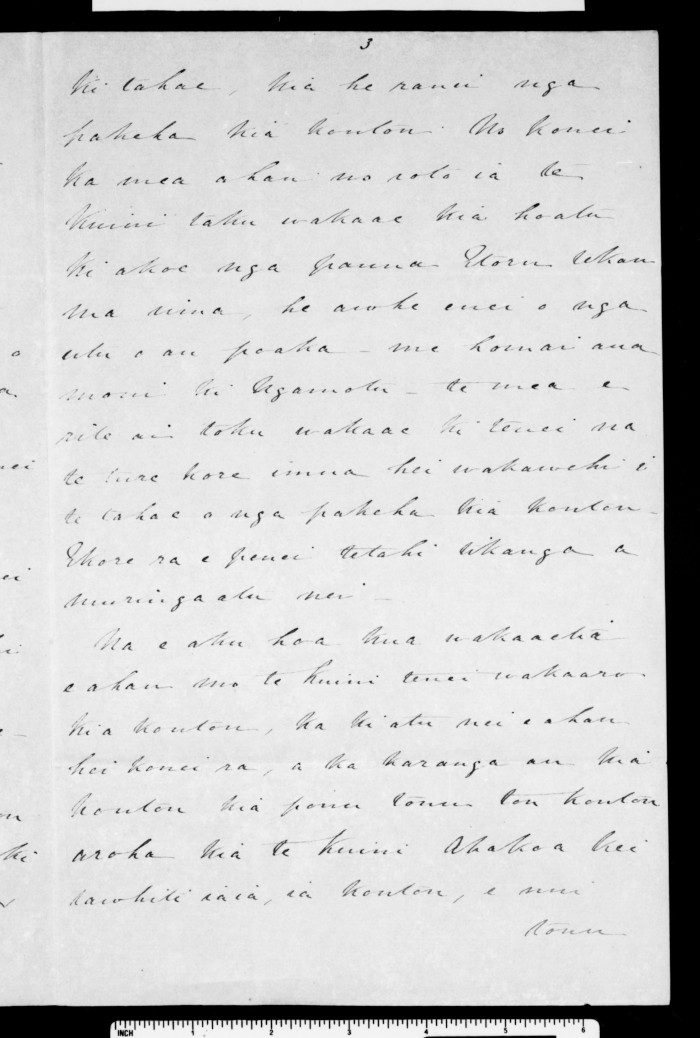 3
ki tahae, kia he ranei nga
pakeha kia koutou. No konei
ka mea ahau no roto ia te
Kuini taku wakaae kia hoatu
ki a koe nga pauna Etoru tekau
ma rima, he awhe enei o nga
utu o au poaka - me homai aua
moni ki Ngamotu - te mea e
rite ai toku wakaae ki tenei na
te ture kore imua hei wakawehi i
te tahae o nga pakeha kia koutou -
Ekore ra e penei tetahi tikanga a
muringa atu nei -
Na e aku hoa kua wakaaetia
e ahau mo te Kuini tenei wakaaro
kia koutou, ka ki atu nei e ahau
hei konei ra, a ka karanga au kia
koutou kia ponu tonu ton koutou
aroha kia te Kuini Ahakoa kei
tawhiti iaia, ia koutou, e nui
tonu
INCH 1 2 3 4 5 6